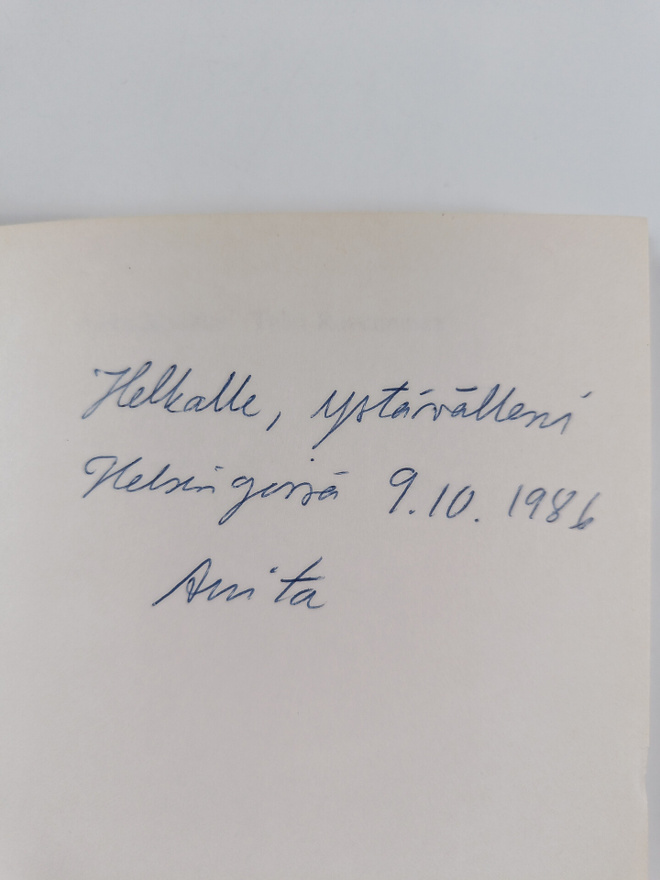 Helkalle, ystävälleni
Helsingissä 9.10.1986
Anita